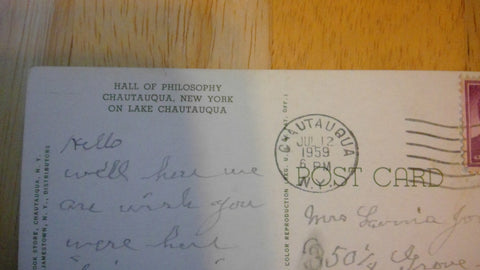 HALL OF PHILOSOPHY
CHAUTAUQUA, NEW YORK
ON LAKE CHAUTAUQUA
Hello
well here we
are wish you
were here
CHAUTAUQUA
JUL 12
1959
6 PM
N.Y.
POST CARD
Mrs
350½ Grove
BOOK STORE, CHAUTAUQUA, N. Y.
JAMESTOWN, N. Y., DISTRIBUTORS
COLOR REPRODUCTION REG. U. S. PAT. OFF.